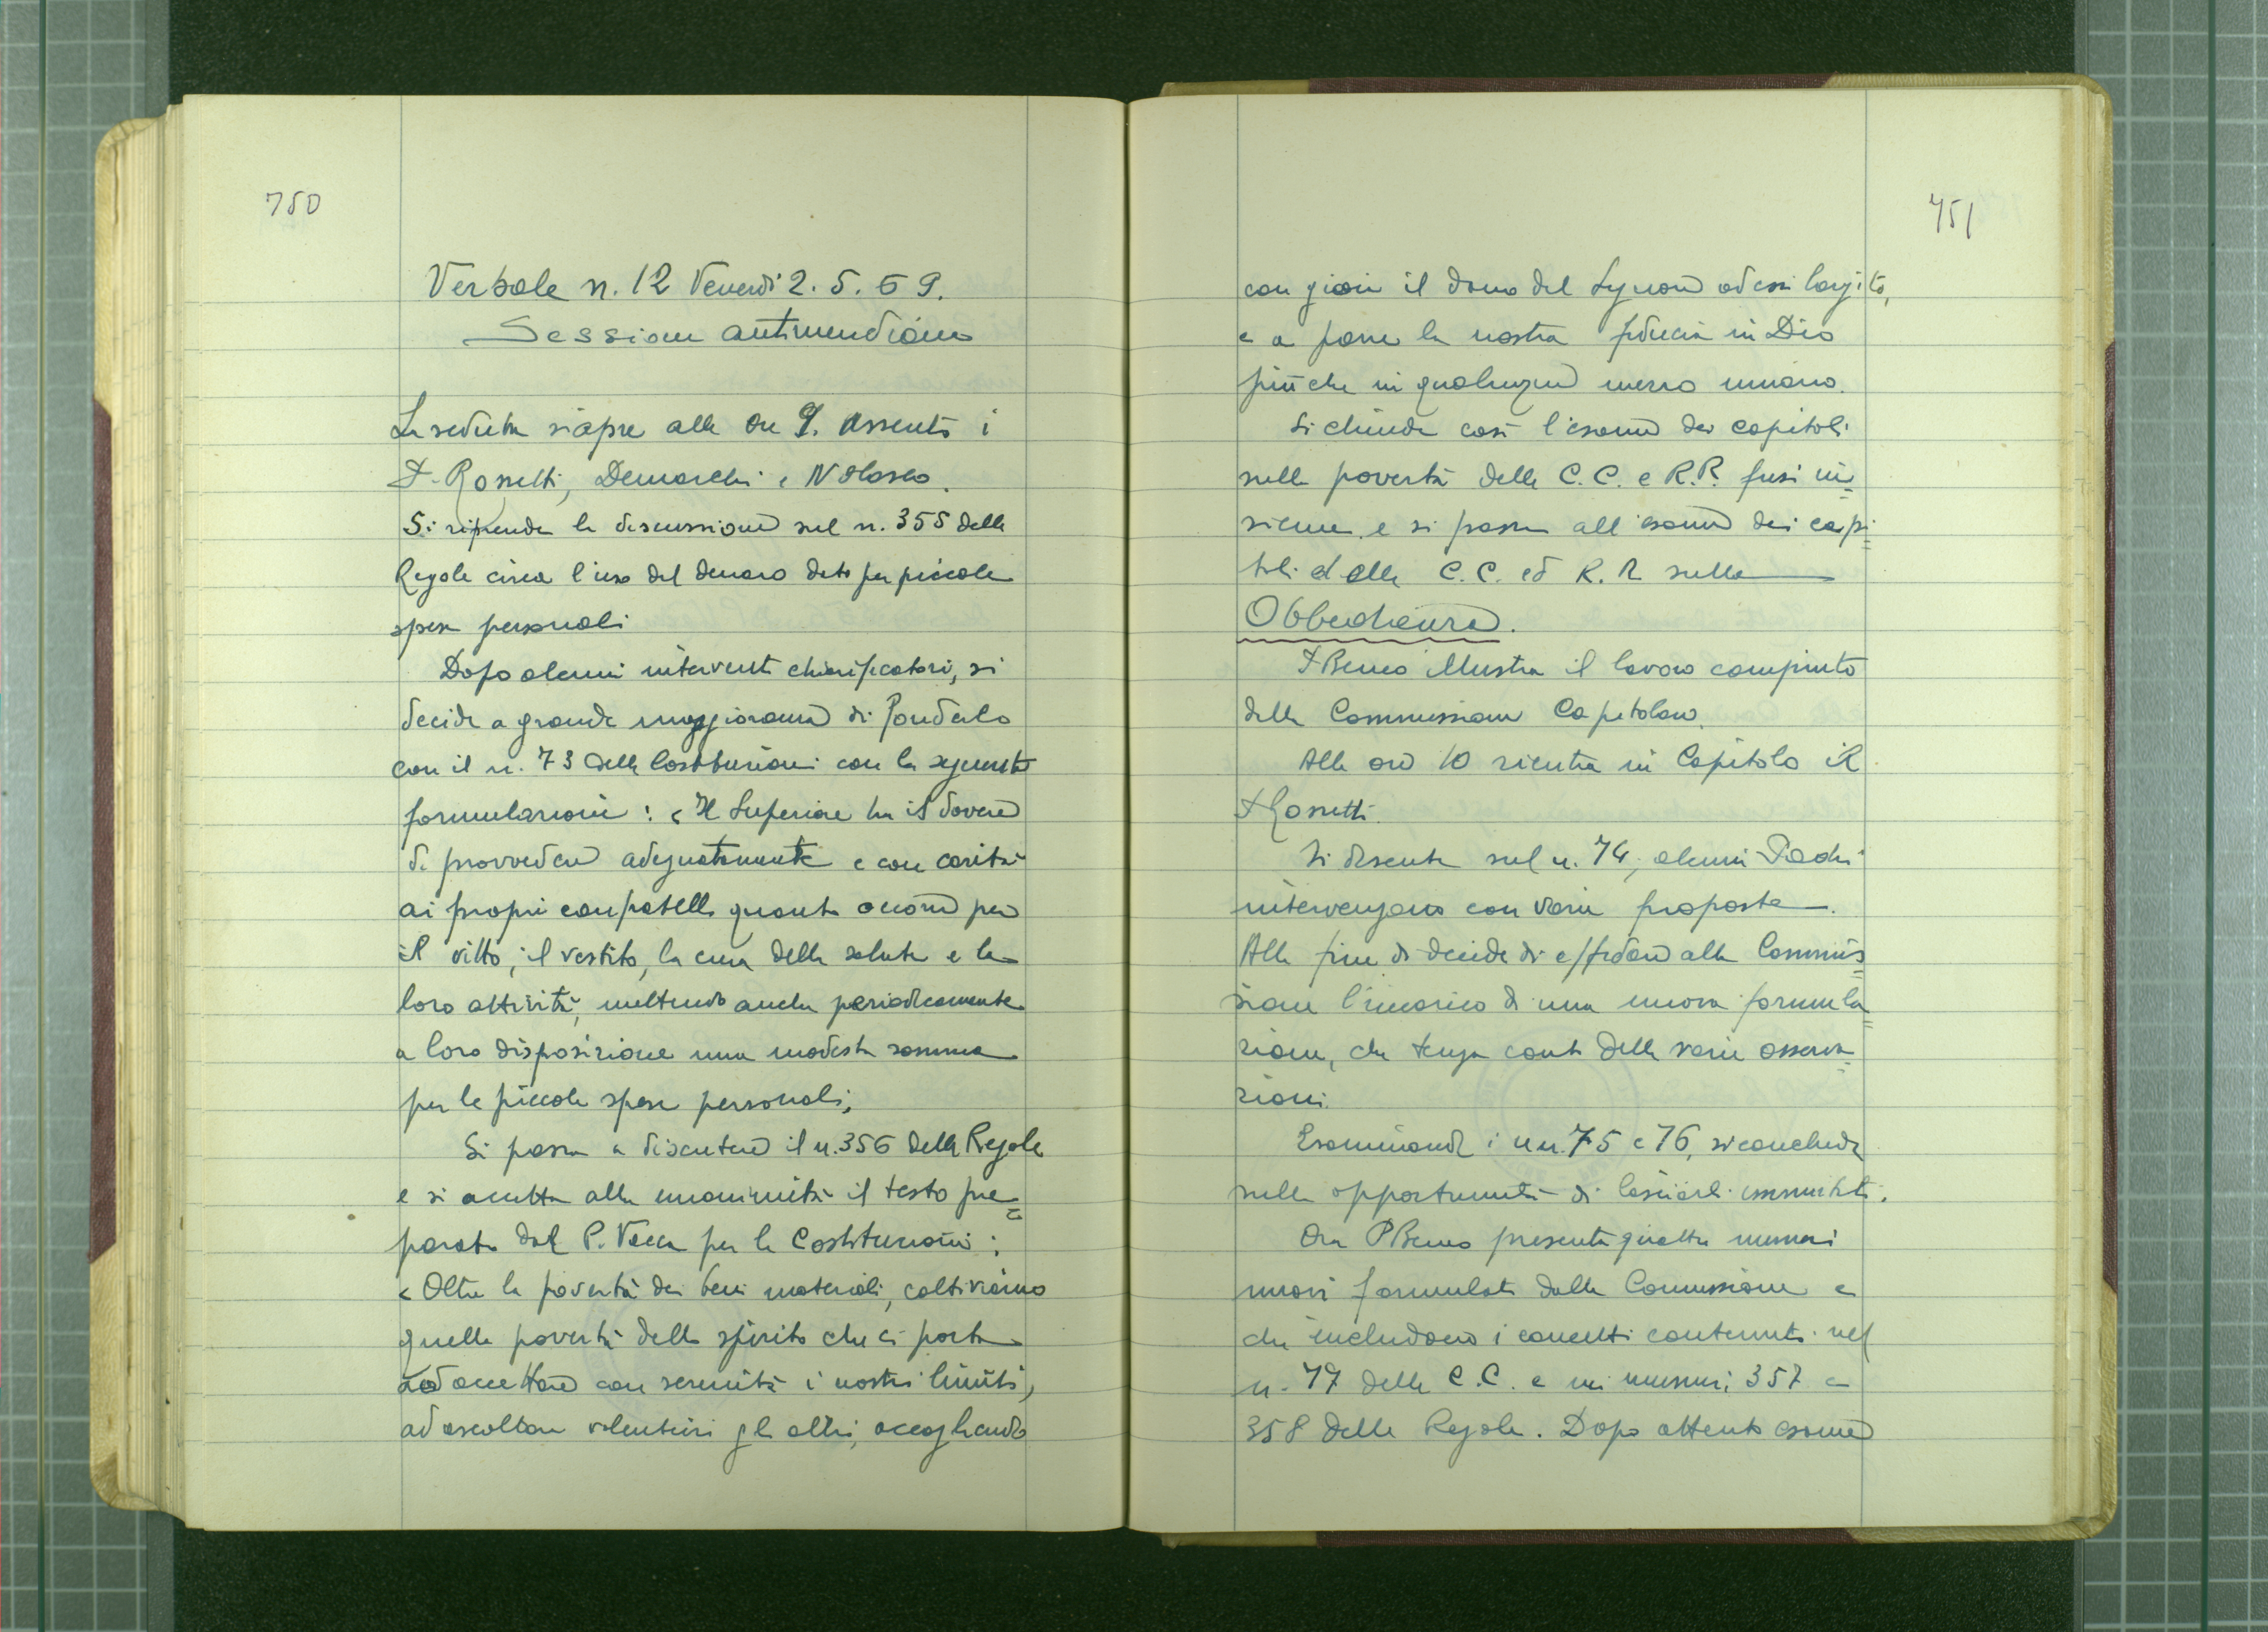 750
Verbale n. 12 Venerdì 2. 5. 69.
Sessione antimeridiana
La seduta si apre alle ore 9. Assenti i
P. Rossetti, Demarchi e
Si riprende la discussione sul n. 355 delle
Regole circa l'uso del denaro dato per piccole
spese personali
Dopo alcuni interventi chiarificatori, si
decide a grande maggioranza di fonderlo
con il n. 73 delle Costituzioni con la seguente
formulazione: « Il Superiore ha il dovere
di provvedere adeguatamente e con carità
ai propri confratelli quanto occorre per
il vitto, il vestito, la cura della salute e le
loro attività, mettendo anche periodicamente
a loro disposizione una modesta somma
per le piccole spese personali,
Si passa a discutere il n. 356 delle Regole
e si accetta alla unanimità il testo pre=
parato dal P. Vacca per le Costituzioni:
« Oltre la povertà dei beni materiali, coltiviamo
quella povertà dello spirito che ci porta
ad accettare con serenità i nostri limiti,
ad ascoltare volentieri gli altri, accogliendo
751
con gioia il dono del Signore ad essi largito,
e a porre la nostra fiducia in Dio
più che in qualunque mezzo umano.
Si chiude così l'esame dei capitoli
sulla povertà delle C.C. e R.R. fusi in=
sieme e si passa all'esame dei capi=
toli delle C.C. ed R.R sulla
Obbedienza.
P Benso illustra il lavoro compiuto
dalla Commissione Capitolare.
Alle ore 10 rientra in Capitolo il
P Rossetti.
Si discute sul n. 74; alcuni Padri
intervengono con varie proposte.
Alla fine si decide di affidare alla Commis=
sione l'incarico di una nuova formula=
zione, che tenga conto delle varie osserva=
zioni.
Esaminando i nn. 75 e 76, si conclude
sulla opportunità di lasciarli immutati.
Ora P Benso presenta quattro numeri
nuovi formulati dalla Commissione e
che includono i concetti contenuti nel
n. 77 delle C.C. e nei numeri 357 e
358 delle Regole. Dopo attento esame